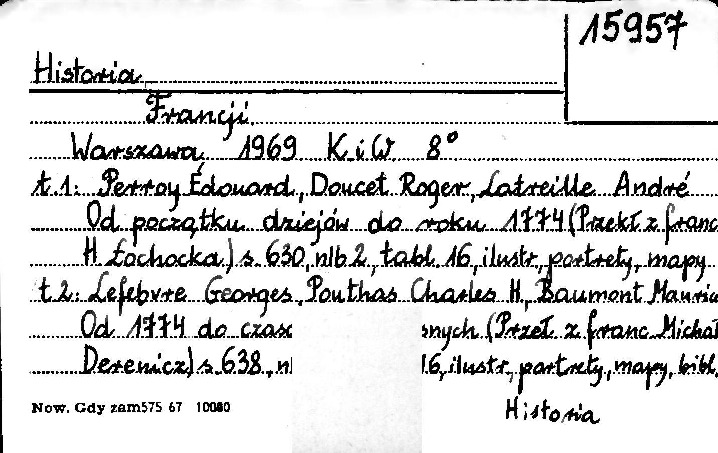 15957
Historia
Francji.
Warszawa, 1969 K i W. 8°
t.1: Perroy Édouard, Doucet Roger, Latreille André
Od początku dziejów do roku 1774 (Przekł z franc
H Łochocka) s 630, nlb 2, tabl. 16, ilustr., portrety, mapy
t.2: Lefebvre Georges, Pouthas Charles H, Baumont Mauric
Od 1774 do czas snych (Przeł z franc Michał
Derenicz) s. 638, nl 16, ilustr., portrety, mapy, bibl.
Now. Gdy zam575 67 10000
Historia